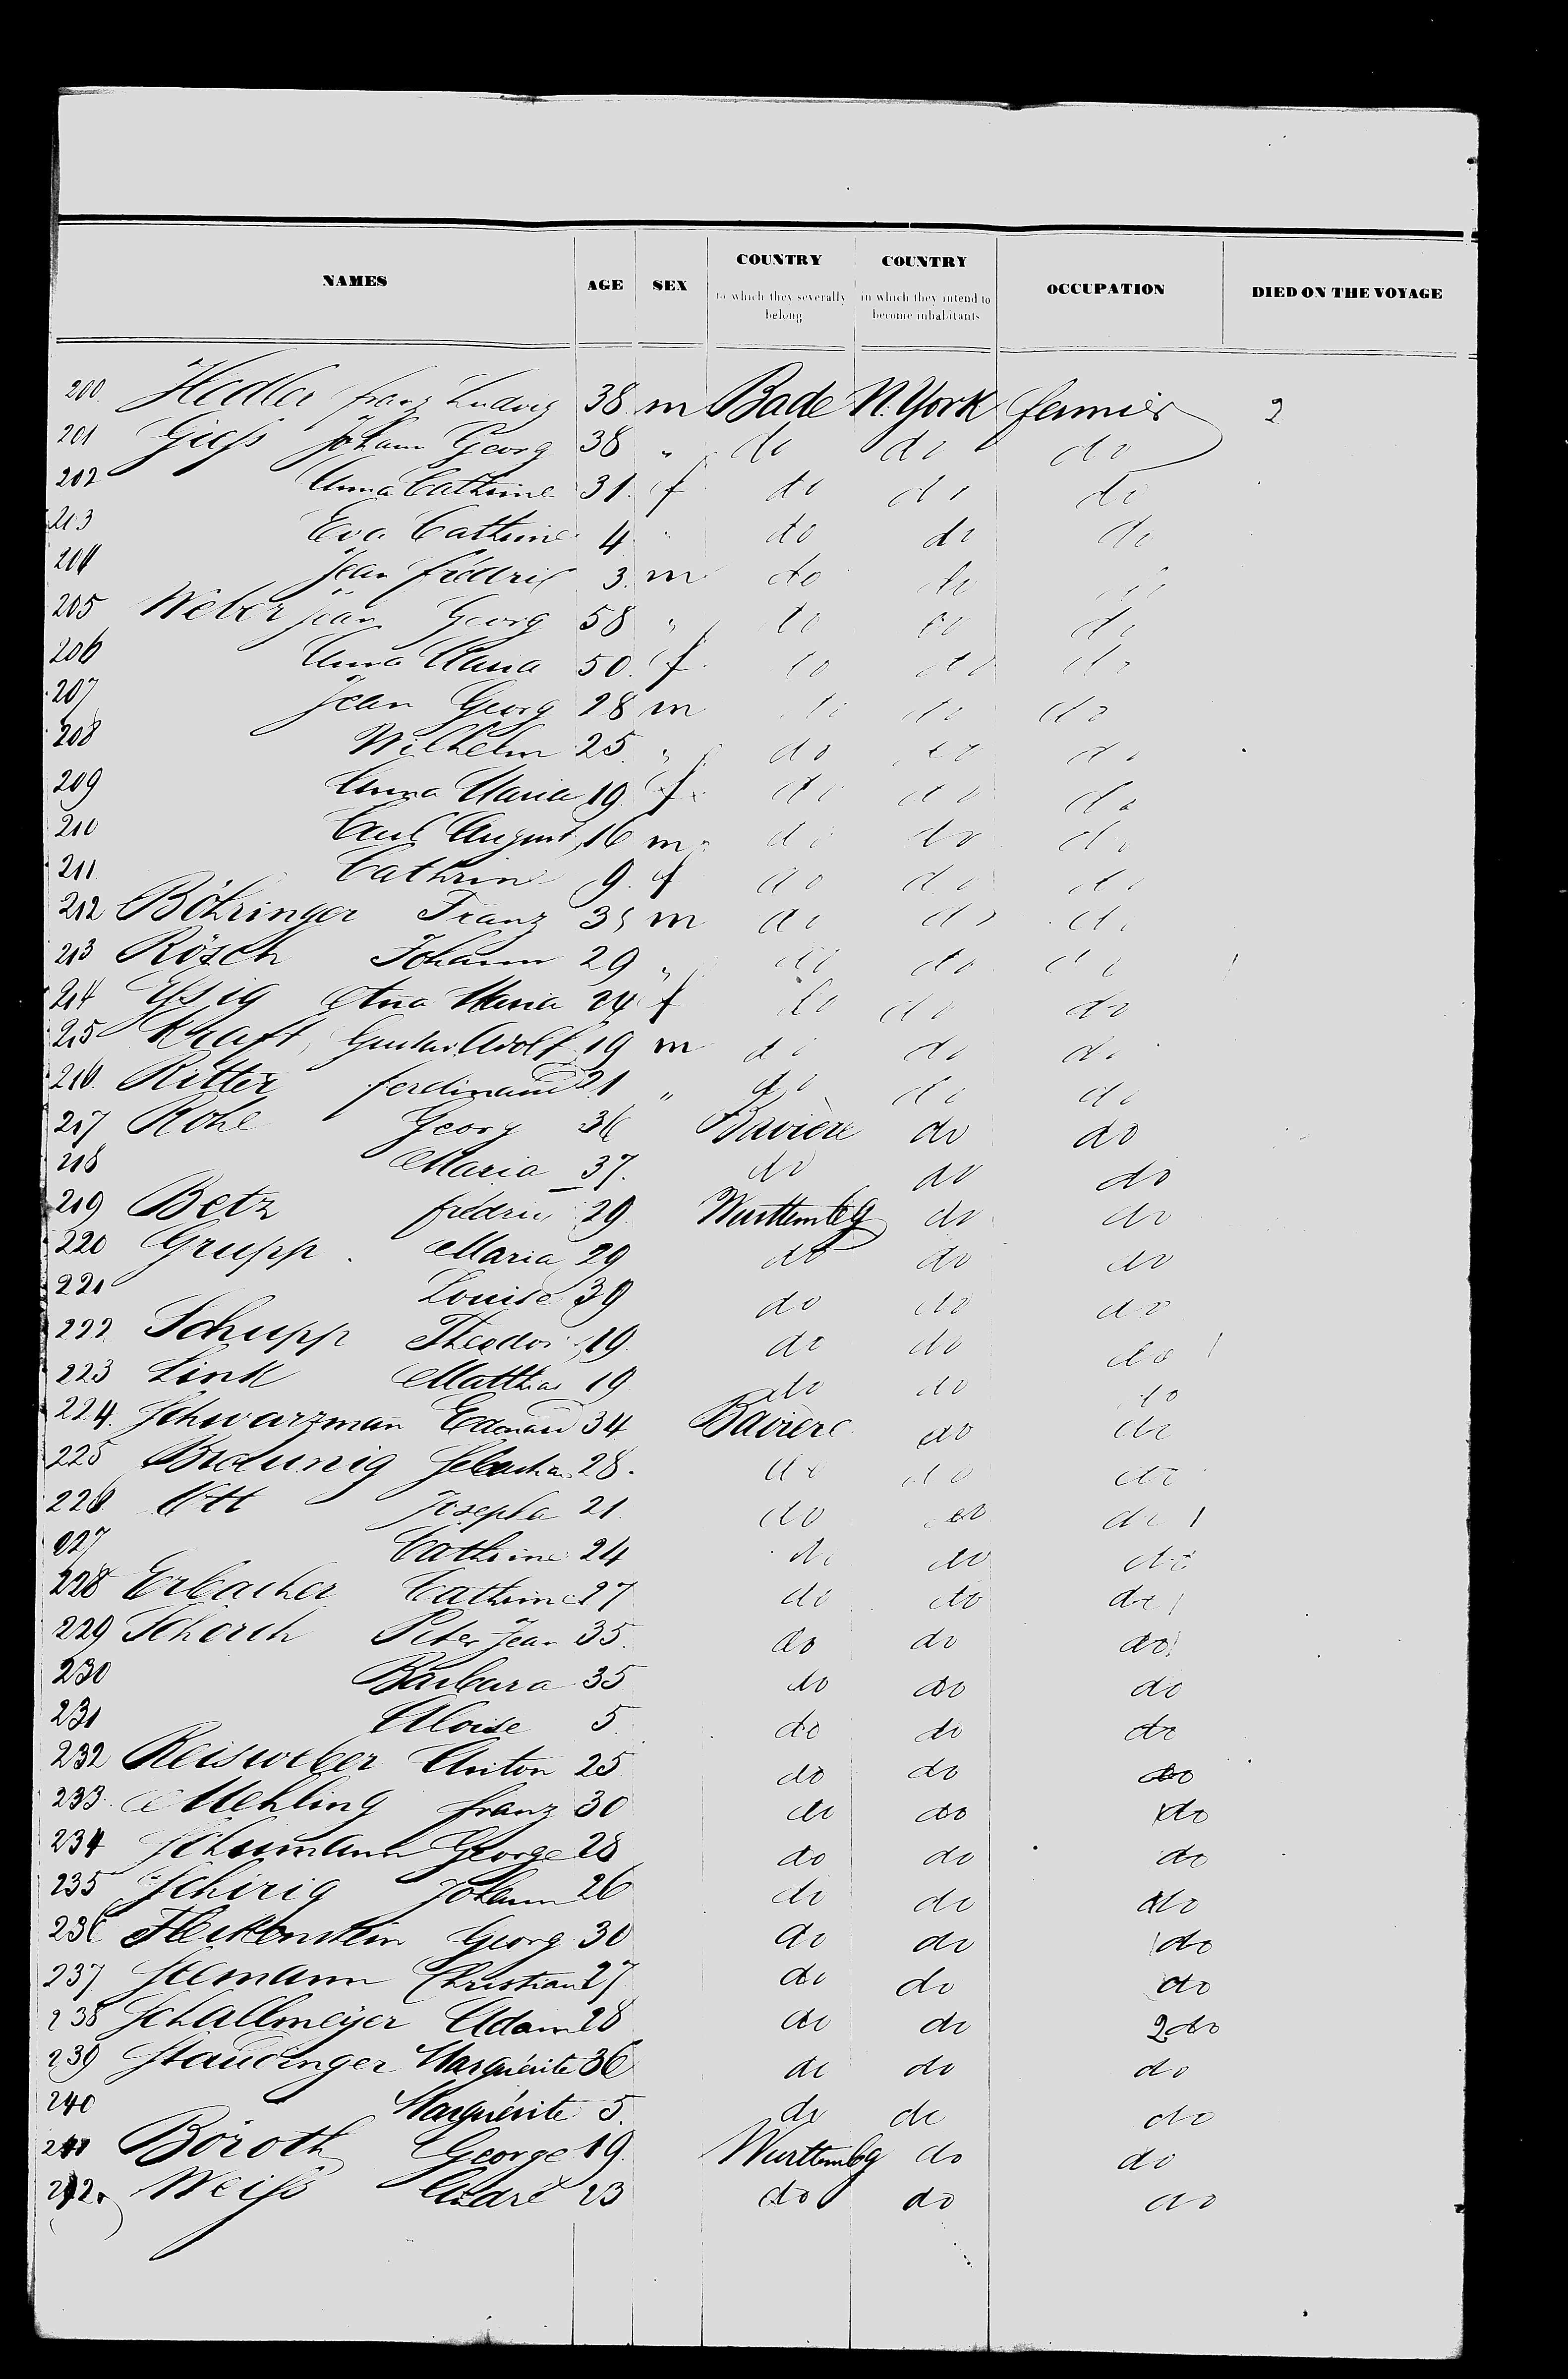 NAMES AGE SEX COUNTRY to which they severally belong COUNTRY in which they intend to become inhabitants OCCUPATION DIED ON THE VOYAGE
200 Hedler franz Ludvig 38 m Bade N. York fermier 2
201 Giess Johann Georg 38 " do do do
202 Anna Cathrine 31 f do do do
203 Eva Cathrine 4 " do do do
204 Jean frédric 3 m do do do
205 Weber Jean Georg 58 " do do do
206 Anna Maria 50 f do do do
207 Jean Georg 28 m do do do
208 Wilhelm 25 " do do do
209 Anna Maria 19 f do do do
210 Carl August 16 m do do do
211 Cathrin 9 f do do do
212 Böhringer Franz 35 m do do do
213 Rösch Johann 29 " do do do
214 Essig Anna Maria 24 f do do do
215 Kraft, Gustav Adolf 19 m do do do
216 Ritter ferdinand 21 " do do do
217 Rohe Georg 36 Bavière do do
218 Maria 37 do do do
219 Betz frédric 29 Wurttembg do do
220 Grupp Maria 29 do do do
221 Louise 39 do do do
222 Schupp Theodor 19 do do do
223 Link Matthias 19 do do do
224 Schwarzman Edouard 34 Bavière do do
225 Braunig Sebastian 28 do do do
226 Ott Josepha 21 do do do
227 Cathrine 24 do do do
228 Erbacher Cathrine 27 do do do
229 Schorch Peter Jean 35 do do do
230 Barbara 35 do do do
231 Aloise 5 do do do
232 Reisweber Anton 25 do do do
233 Mehling franz 30 do do do
234 Schumann George 28 do do do
235 Schirig Johann 26 do do do
236 Fleckenstein Georg 30 do do do
237 Stemann Christian 27 do do do
238 Schallmeyer Adam 28 do do 2 do
239 Staudinger Marguérite 36 do do do
240 Marguérite 5 do do do
241 Böroth George 19 Wurttembg do do
242 Weiss André 23 do do do